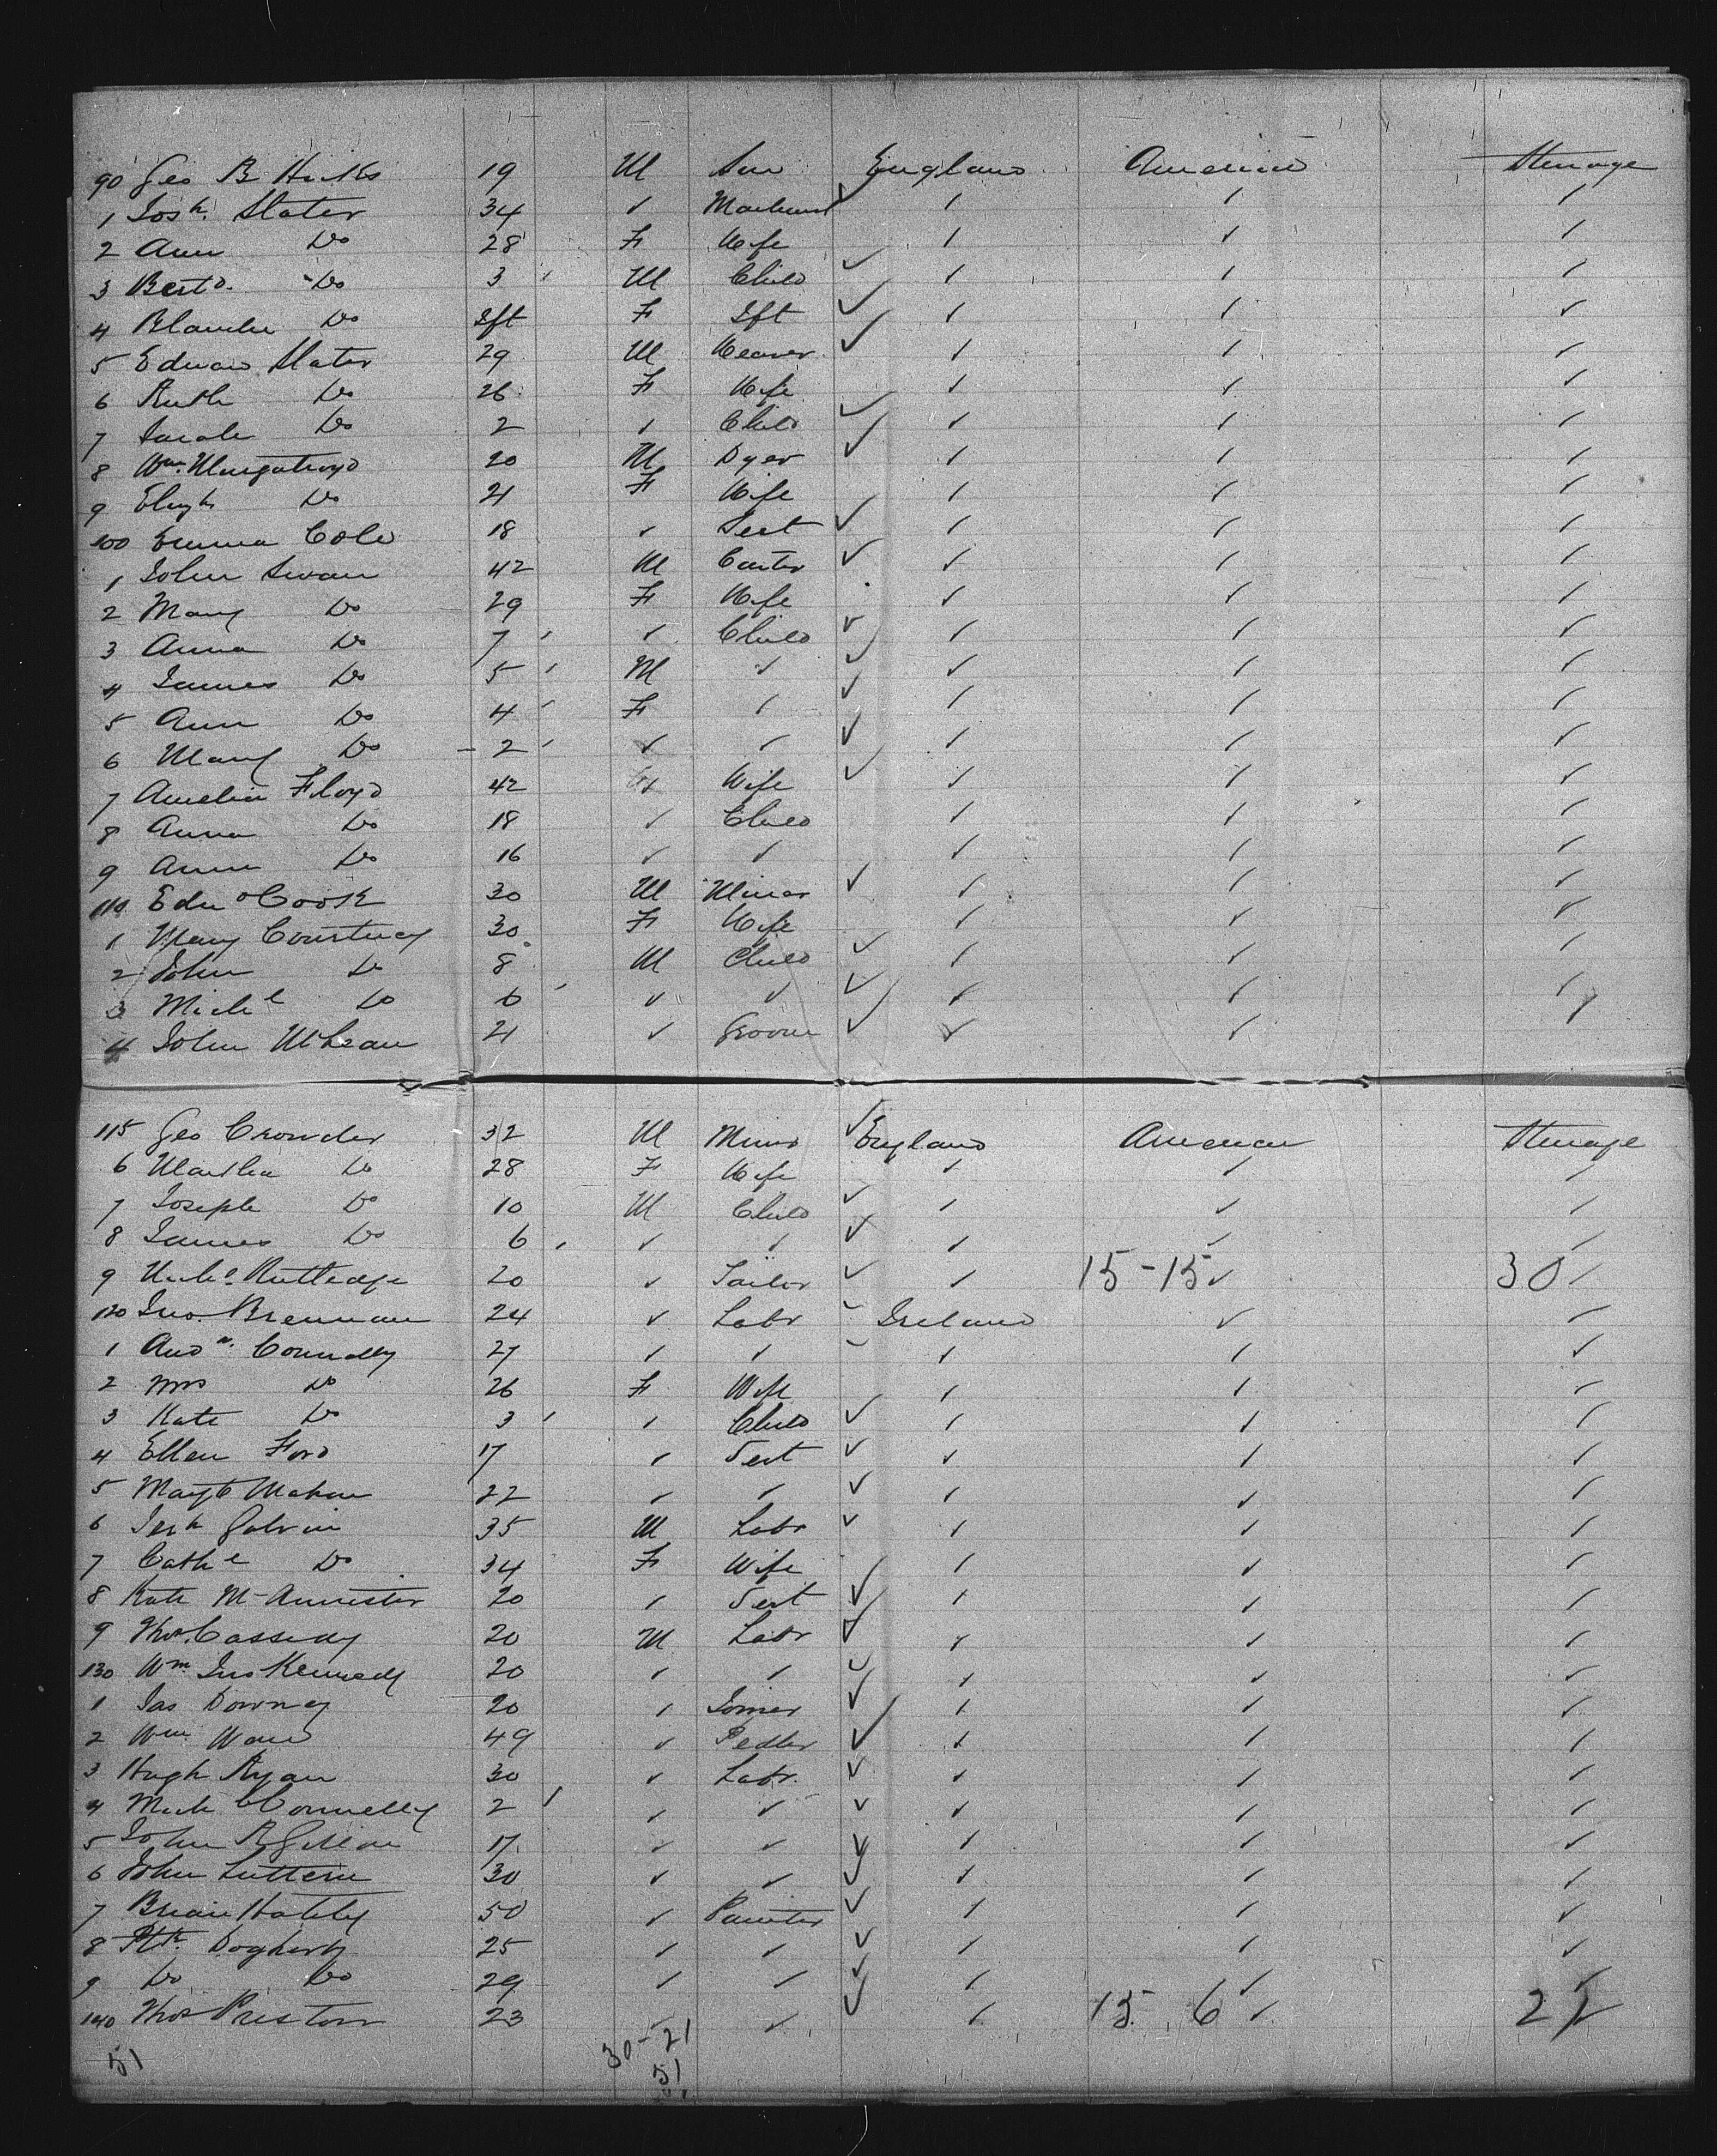 90 Geo B Hicks 19 M England America Steerage
1 Josh. Slater 34 ✓ ✓ ✓ ✓
2 Ann Do 28 F Wife ✓ ✓ ✓
3 Do 3 M Child ✓ ✓ ✓
4 Blanche Do Ift F Ift ✓ ✓ ✓
5 Edward Slater 29 M Weaver ✓ ✓ ✓
6 Ruth Do 26 F Wife ✓ ✓ ✓
7 Sarah Do 2 ✓ Child ✓ ✓ ✓
8 Wm. Murgatroyd 20 M Dyer ✓ ✓ ✓
9 Do 21 F Wife ✓ ✓ ✓
100 Emma Cole 18 ✓ Sert ✓ ✓ ✓
1 John Swan 42 M Carter ✓ ✓ ✓
2 Mary Do 29 F Wife ✓ ✓ ✓
3 Anna Do 7 ✓ Child ✓ ✓ ✓
4 James Do 5 M ✓ ✓ ✓ ✓
5 Ann Do 4 F ✓ ✓ ✓ ✓
6 Mary Do 2 ✓ ✓ ✓ ✓ ✓
7 Amelia Floyd 42 Wife ✓ ✓ ✓
8 Anna Do 18 ✓ Child ✓ ✓ ✓
9 Annie Do 16 ✓ ✓ ✓ ✓ ✓
110 Edwd Cook 30 M Miner ✓ ✓ ✓
1 Mary Courtney 30 F Wife ✓ ✓ ✓
2 John Do 8 M Child ✓ ✓ ✓
3 Michl Do 6 ✓ ✓ ✓ ✓ ✓
4 John McLean 21 ✓ Groom ✓ ✓ ✓
115 Geo Crowder 32 M Miner England American Steerage
6 Martha Do 28 F Wife ✓ ✓ ✓
7 Joseph Do 10 M Child ✓ ✓ ✓
8 James Do 6 ✓ ✓ ✓ ✓ ✓
9 Rutledge 20 ✓ Tailor ✓ 15-15 ✓ 30 ✓
120 Jno. Brennan 24 ✓ Labr Ireland ✓ ✓
1 Andw. Connolly 27 ✓ ✓ ✓ ✓ ✓
2 Mrs Do 26 F Wife ✓ ✓ ✓
3 Kate Do 3 ✓ Child ✓ ✓ ✓
4 Ellen Ford 17 ✓ Sert ✓ ✓ ✓
5 Margt Mahon 22 ✓ ✓ ✓ ✓ ✓
6 Jerh Galvin 35 M Labr ✓ ✓ ✓
7 Cathe Do 34 F Wife ✓ ✓ ✓
8 Kate 20 ✓ Sert ✓ ✓ ✓
9 Thos. Cassidy 20 M Labr ✓ ✓ ✓
130 Wm. Jno Kennedy 20 ✓ ✓ ✓ ✓ ✓
1 Jas Downey 20 ✓ Joiner ✓ ✓ ✓
2 Wm. 49 ✓ Pedler ✓ ✓ ✓
3 Hugh Ryan 30 ✓ Labr. ✓ ✓ ✓
4 Mich Connelly 2 ✓ ✓ ✓ ✓ ✓
5 John 17 ✓ ✓ ✓ ✓ ✓
6 John 30 ✓ ✓ ✓ ✓ ✓
7 Brian 50 ✓ Painter ✓ ✓ ✓
8 Dogherty 25 ✓ ✓ ✓ ✓ ✓
9 Do Do 29 ✓ ✓ ✓ ✓ ✓
140 Thos Preston 23 ✓ ✓ ✓ 15 6 ✓
51 30-21
51